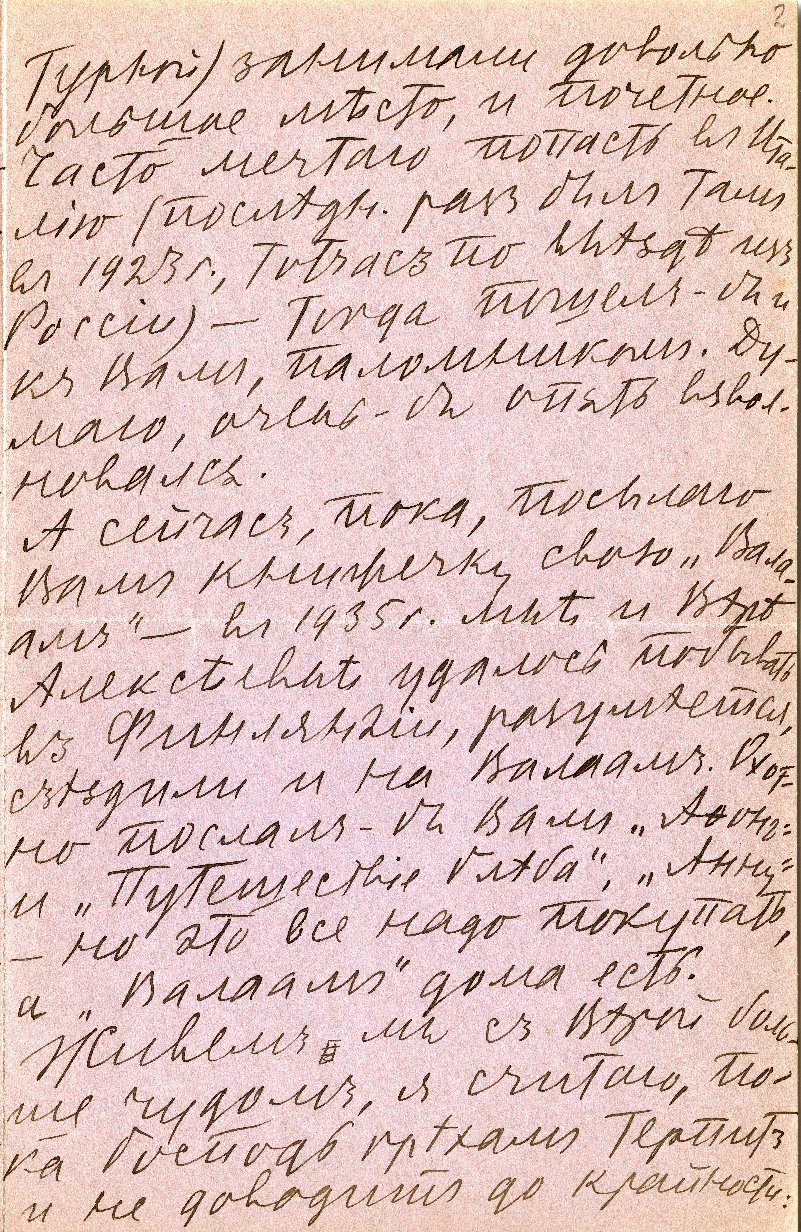 2
Туркой) занимали довольно
большое мѣсто, и почетное.
Часто мечтаю попасть въ Ита-
лію (послѣдн. разъ былъ тамъ
въ 1923 г., тотчасъ по выѣздѣ изъ
Россіи) — Тогда пошелъ-бы и
къ Вамъ, паломникомъ. Ду-
маю, очень-бы опять взвол-
новался.
А сейчасъ, пока, посылаю
Вамъ книжечку свою „Вала-
амъ“ — въ 1935 г. мнѣ и Вѣрѣ
Алексѣевнѣ удалось побывать
въ Финляндіи, разумѣется,
съѣздили и на Валаамъ. Охот-
но послалъ-бы Вамъ „Аѳонъ“
и „Путешествіе Глѣба“, „Анну“
— но это все надо покупать,
а „Валаамъ“ дома есть.
Живемъ мы съ Вѣрой боль-
ше чудомъ, я считаю, по-
ка Господь грѣхамъ терпитъ
и не доводитъ до крайности: